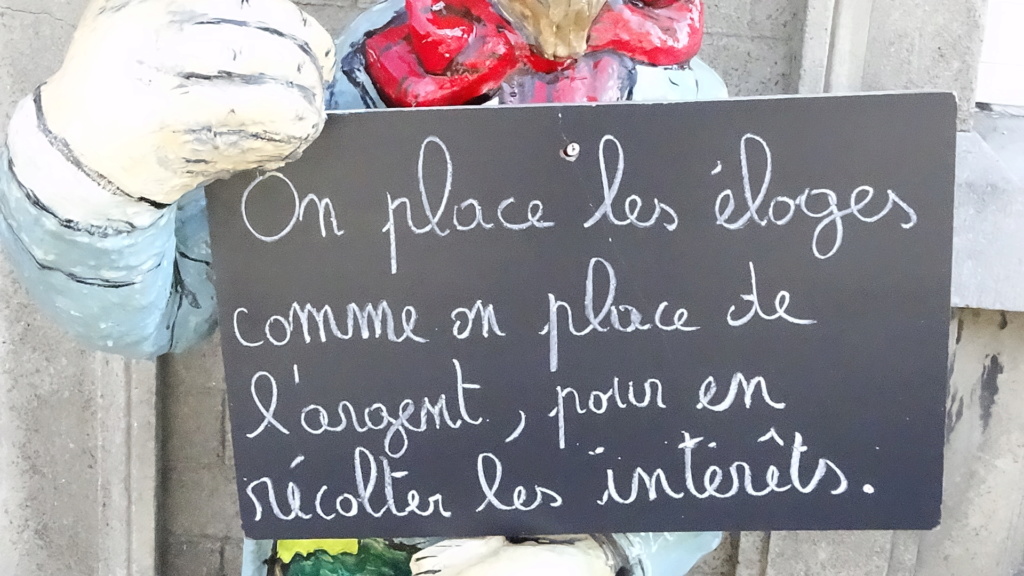 On place les éloges
comme on place de
l'argent, pour en
récolter les intérêts.